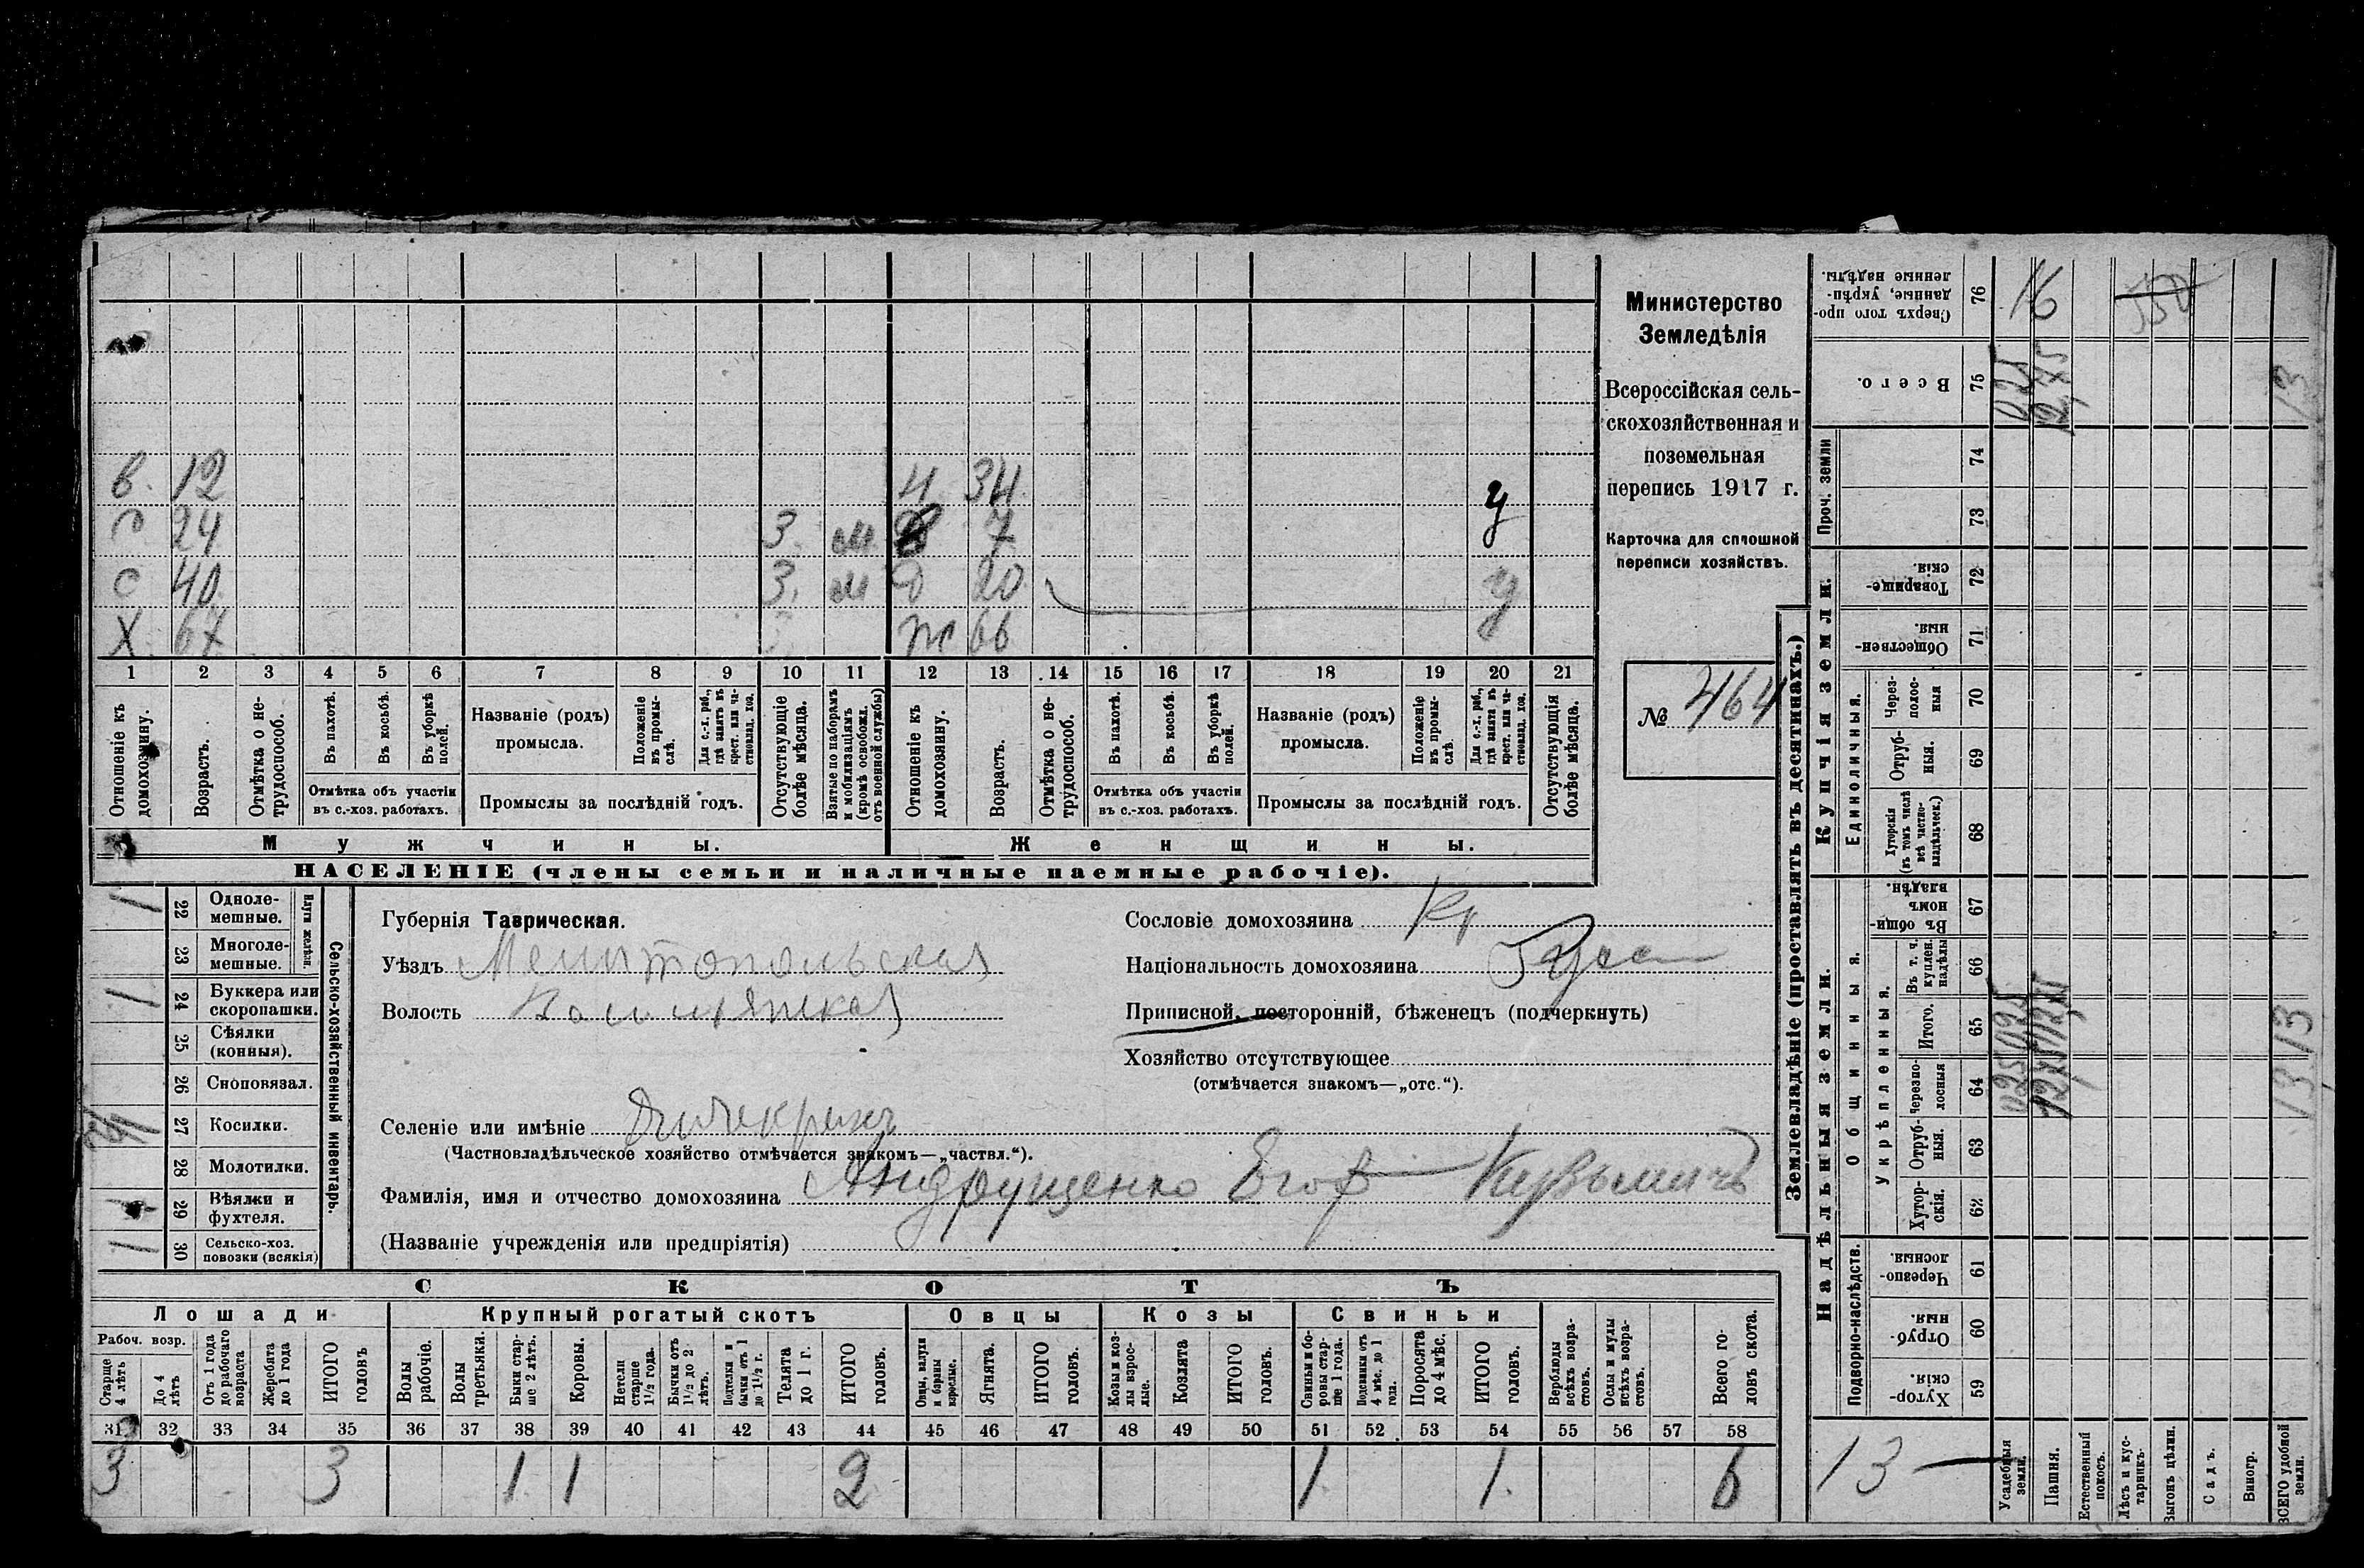 Министерство
Земледѣлія
Всероссійская сель-
скохозяйственная и
поземельная
перепись 1917 г.
Карточка для сплошной
переписи хозяйствъ.
№ 464
В. 12
24 З.
С 40 З.
Х 67
34 у
7
Д 20 у
Ж 66
1 2 3 4 5 6 7 8 9 10 11 12 13 14 15 16 17 18 19 20 21
Отношеніе къ домохозяину.
Возрастъ.
Отмѣтка о не-трудоспособ.
Въ пахотѣ.
Въ косьбѣ.
Въ уборкѣ полей.
Отмѣтка объ участіи
въ с.-хоз. работахъ.
Названіе (родъ)
промысла.
Положеніе въ промы-слѣ.
Для с.-х. раб., гдѣ занятъ въ крест. или ча-стновлад. хоз.
Промыслы за послѣдній годъ.
Отсутствующіе болѣе мѣсяца.
Взятые по наборамъ и мобилизаціямъ (кромѣ освобожд. отъ военной службы)
Отношеніе къ домохозяину.
Возрастъ.
Отмѣтка о не-трудоспособ.
Въ пахотѣ.
Въ косьбѣ.
Въ уборкѣ полей.
Отмѣтка объ участіи
въ с.-хоз. работахъ.
Названіе (родъ)
промысла.
Положеніе въ промы-слѣ.
Для с.-х. раб., гдѣ занята въ крест. или ча-стновлад. хоз.
Промыслы за послѣдній годъ.
Отсутствующія болѣе мѣсяца.
Мужчины. Женщины.
НАСЕЛЕНІЕ (члены семьи и наличные наемные рабочіе).
Сельско-хозяйственный инвентарь.
Плуги желѣзн.
1 22 Одноле-мешные.
23 Многоле-мешные.
1 24 Буккера или скоропашки.
25 Сѣялки (конныя).
26 Сноповязал.
27 Косилки.
28 Молотилки.
29 Вѣялки и фухтеля.
1 30 Сельско-хоз. повозки (всякія)
Губернія Таврическая.
Уѣздъ Мелитопольская
Волость
Сословіе домохозяина Кр
Національность домохозяина
Приписной, посторонній, бѣженецъ (подчеркнуть)
Хозяйство отсутствующее
(отмѣчается знакомъ—„отс.“).
Селеніе или имѣніе
(Частновладѣльческое хозяйство отмѣчается знакомъ—„частвл.“).
Фамилія, имя и отчество домохозяина Андрущенко Егор Кузьмичъ
(Названіе учрежденія или предпріятія)
СКОТЪ
Лошади Крупный рогатый скотъ Овцы Козы Свиньи
Рабоч. возр.
Старше 4 лѣтъ
До 4 лѣтъ
Отъ 1 года до рабочаго возраста
Жеребята до 1 года
ИТОГО головъ
Волы рабочіе.
Волы третьяки.
Быки стар-ше 2 лѣтъ.
Коровы.
Нетели старше 1½ года.
Бычки отъ 1½ до 2 лѣтъ.
Подтелки и бычки отъ 1 до 1½ г.
Телята до 1 г.
ИТОГО головъ.
Овцы, валухи и бараны взрослые.
Ягнята.
ИТОГО головъ.
Козы и коз-лы взрос-лые.
Козлята
ИТОГО головъ.
Свиньи и бо-ровы стар-ше 1 года.
Подсвинки отъ 4 мѣс. до 1 года.
Поросята до 4 мѣс.
ИТОГО головъ.
Верблюды всѣхъ возра-стовъ.
Ослы и мулы всѣхъ возра-стовъ.
Всего го-ловъ скота.
31 32 33 34 35 36 37 38 39 40 41 42 43 44 45 46 47 48 49 50 51 52 53 54 55 56 57 58
3 3 1 1 2 1 1 6
Землевладѣніе (проставлять въ десятинахъ.)
Сверхъ того про-данные, укрѣп-ленные надѣлы. 76 16
Всего. 75 0,25 13
Проч. земли 74
73
Купчія земли.
Товарище-скія. 72
Обществен-ныя. 71
Единоличныя.
Через-полос-ныя 70
Отруб-ныя. 69
Хуторскія (въ томъ числѣ всѣ частно-владѣльческ.) 68
Надѣльныя земли.
Общинныя.
Въ общи-номъ владѣн. 67
Укрѣпленныя.
Въ т. ч. куплен. надѣлы 66
Итого. 65 0,25 13
Черезпо-лосныя 64 0,25 13
Отруб-ныя. 63
Хутор-скія. 62
Подворно-наслѣдств.
Черезпо-лосныя 61
Отруб-ныя. 60
Хутор-скія. 59
13
Усадебныя земли.
Пашня.
Естественный покосъ.
Лѣсъ и кус-тарникъ.
Выгонъ цѣлин.
Садъ.
Виногр.
ВСЕГО удобной земли.